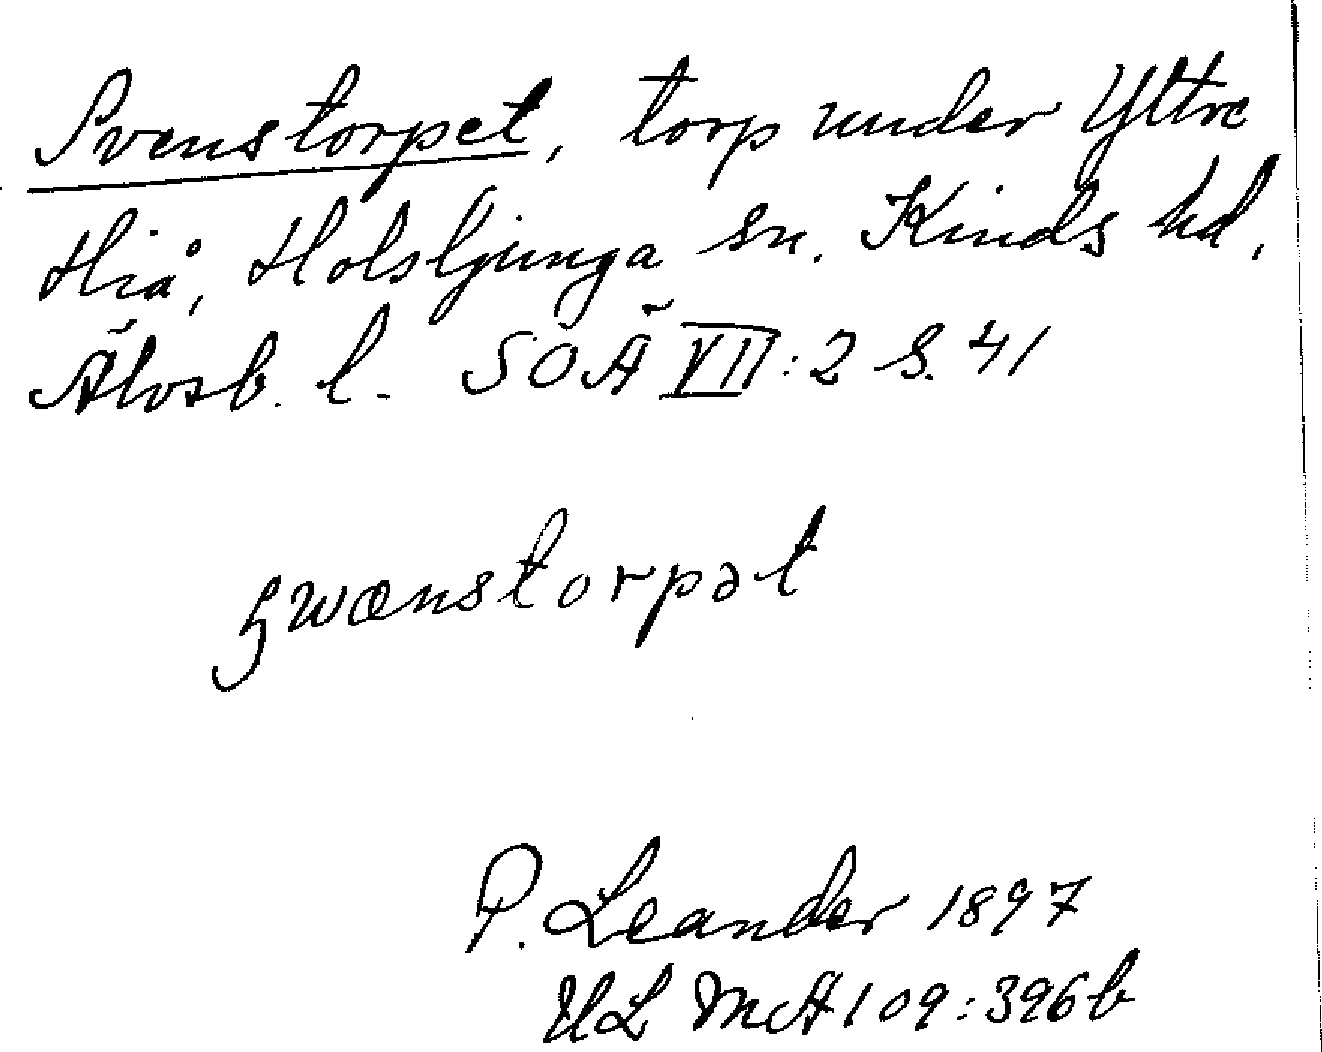 Svenstorpet, torp under Yttre
Hiå, Holsljunga sn. Kinds hd,
Älvsb. l. SOÄ VII:2 S. 41
swænstorpət
P. Leander 1897
ULMA 109:396b